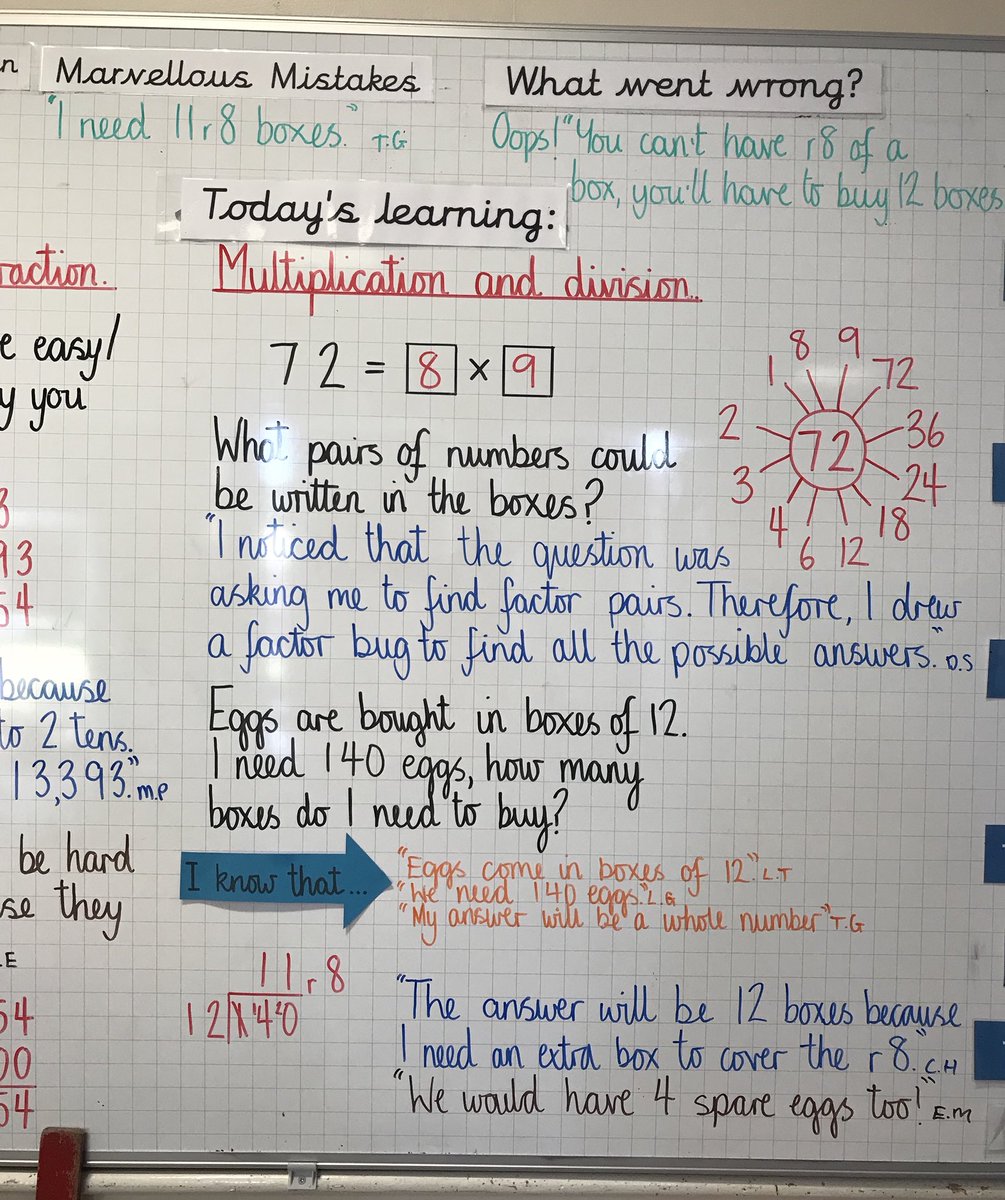 n
Marvellous Mistakes
What went wrong?
"I need 11 r 8 boxes." T.G
Oops! "You can't have r8 of a
box, you'll have to buy 12 boxes
Today's learning:
Multiplication and division.
72 = 8 × 9
What pairs of numbers could
be written in the boxes?
"I noticed that the question was
asking me to find factor pairs. Therefore, I drew
a factor bug to find all the possible answers." D.S
72
1
8
9
72
2
36
3
24
4
6
12
18
Eggs are bought in boxes of 12.
I need 140 eggs, how many
boxes do I need to buy?
I know that...
"Eggs come in boxes of 12" L.T
"We need 140 eggs." L.G
"My answer will be a whole number" T.G
11 r 8
12 1 ¹4 ²0
"The answer will be 12 boxes because
I need an extra box to cover the r 8." C.H
"We would have 4 spare eggs too!" E.M
raction.
e easy/
y you
3
93
54
because
to 2 tens.
13,393." M.P
be hard
se they
.E
54
00
54